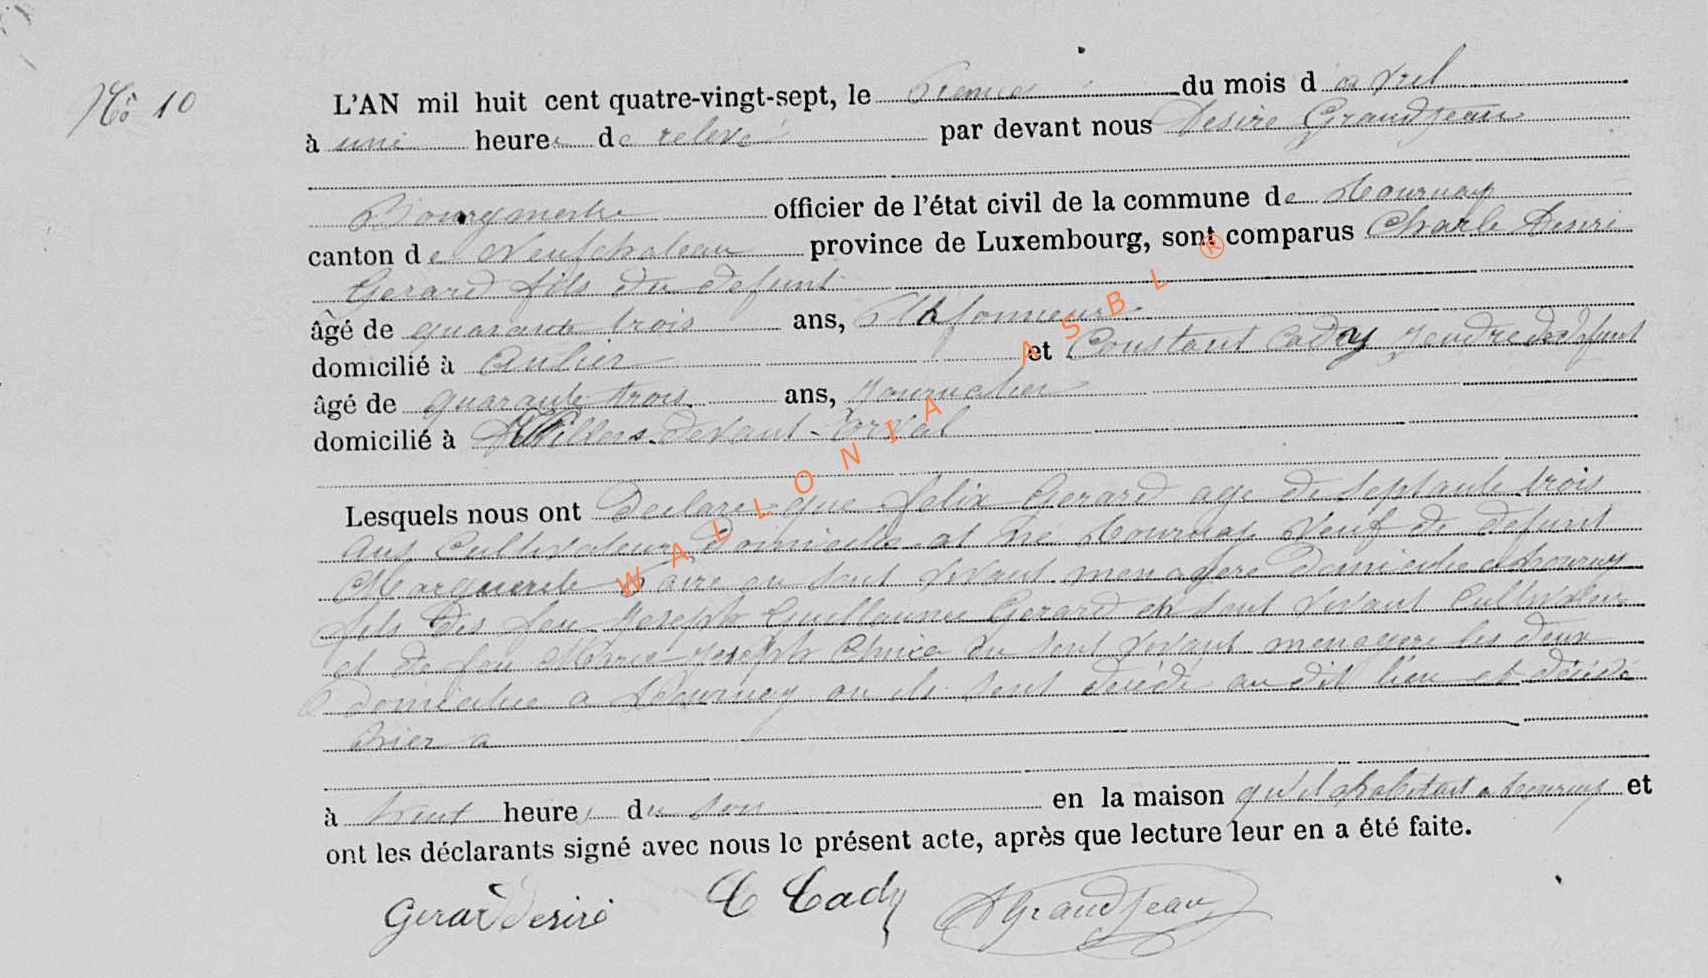 No 10
L'AN mil huit cent quatre-vingt-sept, le Premier du mois d avril
à une heures de relevé par devant nous Desiré Grandjean
Bourgmestre officier de l'état civil de la commune de Tournay
canton de Neufchateau province de Luxembourg, sont comparus Charle Desiré
Gerard fils du defunt
âgé de quarante trois ans, Plafonneur
domicilié à Anlier et Constant Cady gendre du defunt
âgé de quarante trois ans, Journalier
domicilié à Villers-devant-Orval
Lesquels nous ont Declaré que felix Gerard age de septante trois
ans Cultivateur, domicilie et né Tournay Veuf de defunt
Marguerite en sont vivant menagere domicilie a Tournay
fils des feu Joseph Guillaume Gerard en sont vivant Cultivateur
et de feu Marie Joseph en sont vivant menagere les deux
domicilie a Tournay ou ils sont décédé au dit lieu et décédé
hier a
à huit heures du soir en la maison qu'il habitait a Tournay et
ont les déclarants signé avec nous le présent acte, après que lecture leur en a été faite.
Gerard Desiré C Cady D Grandjean
WALLONIA ASBL ®